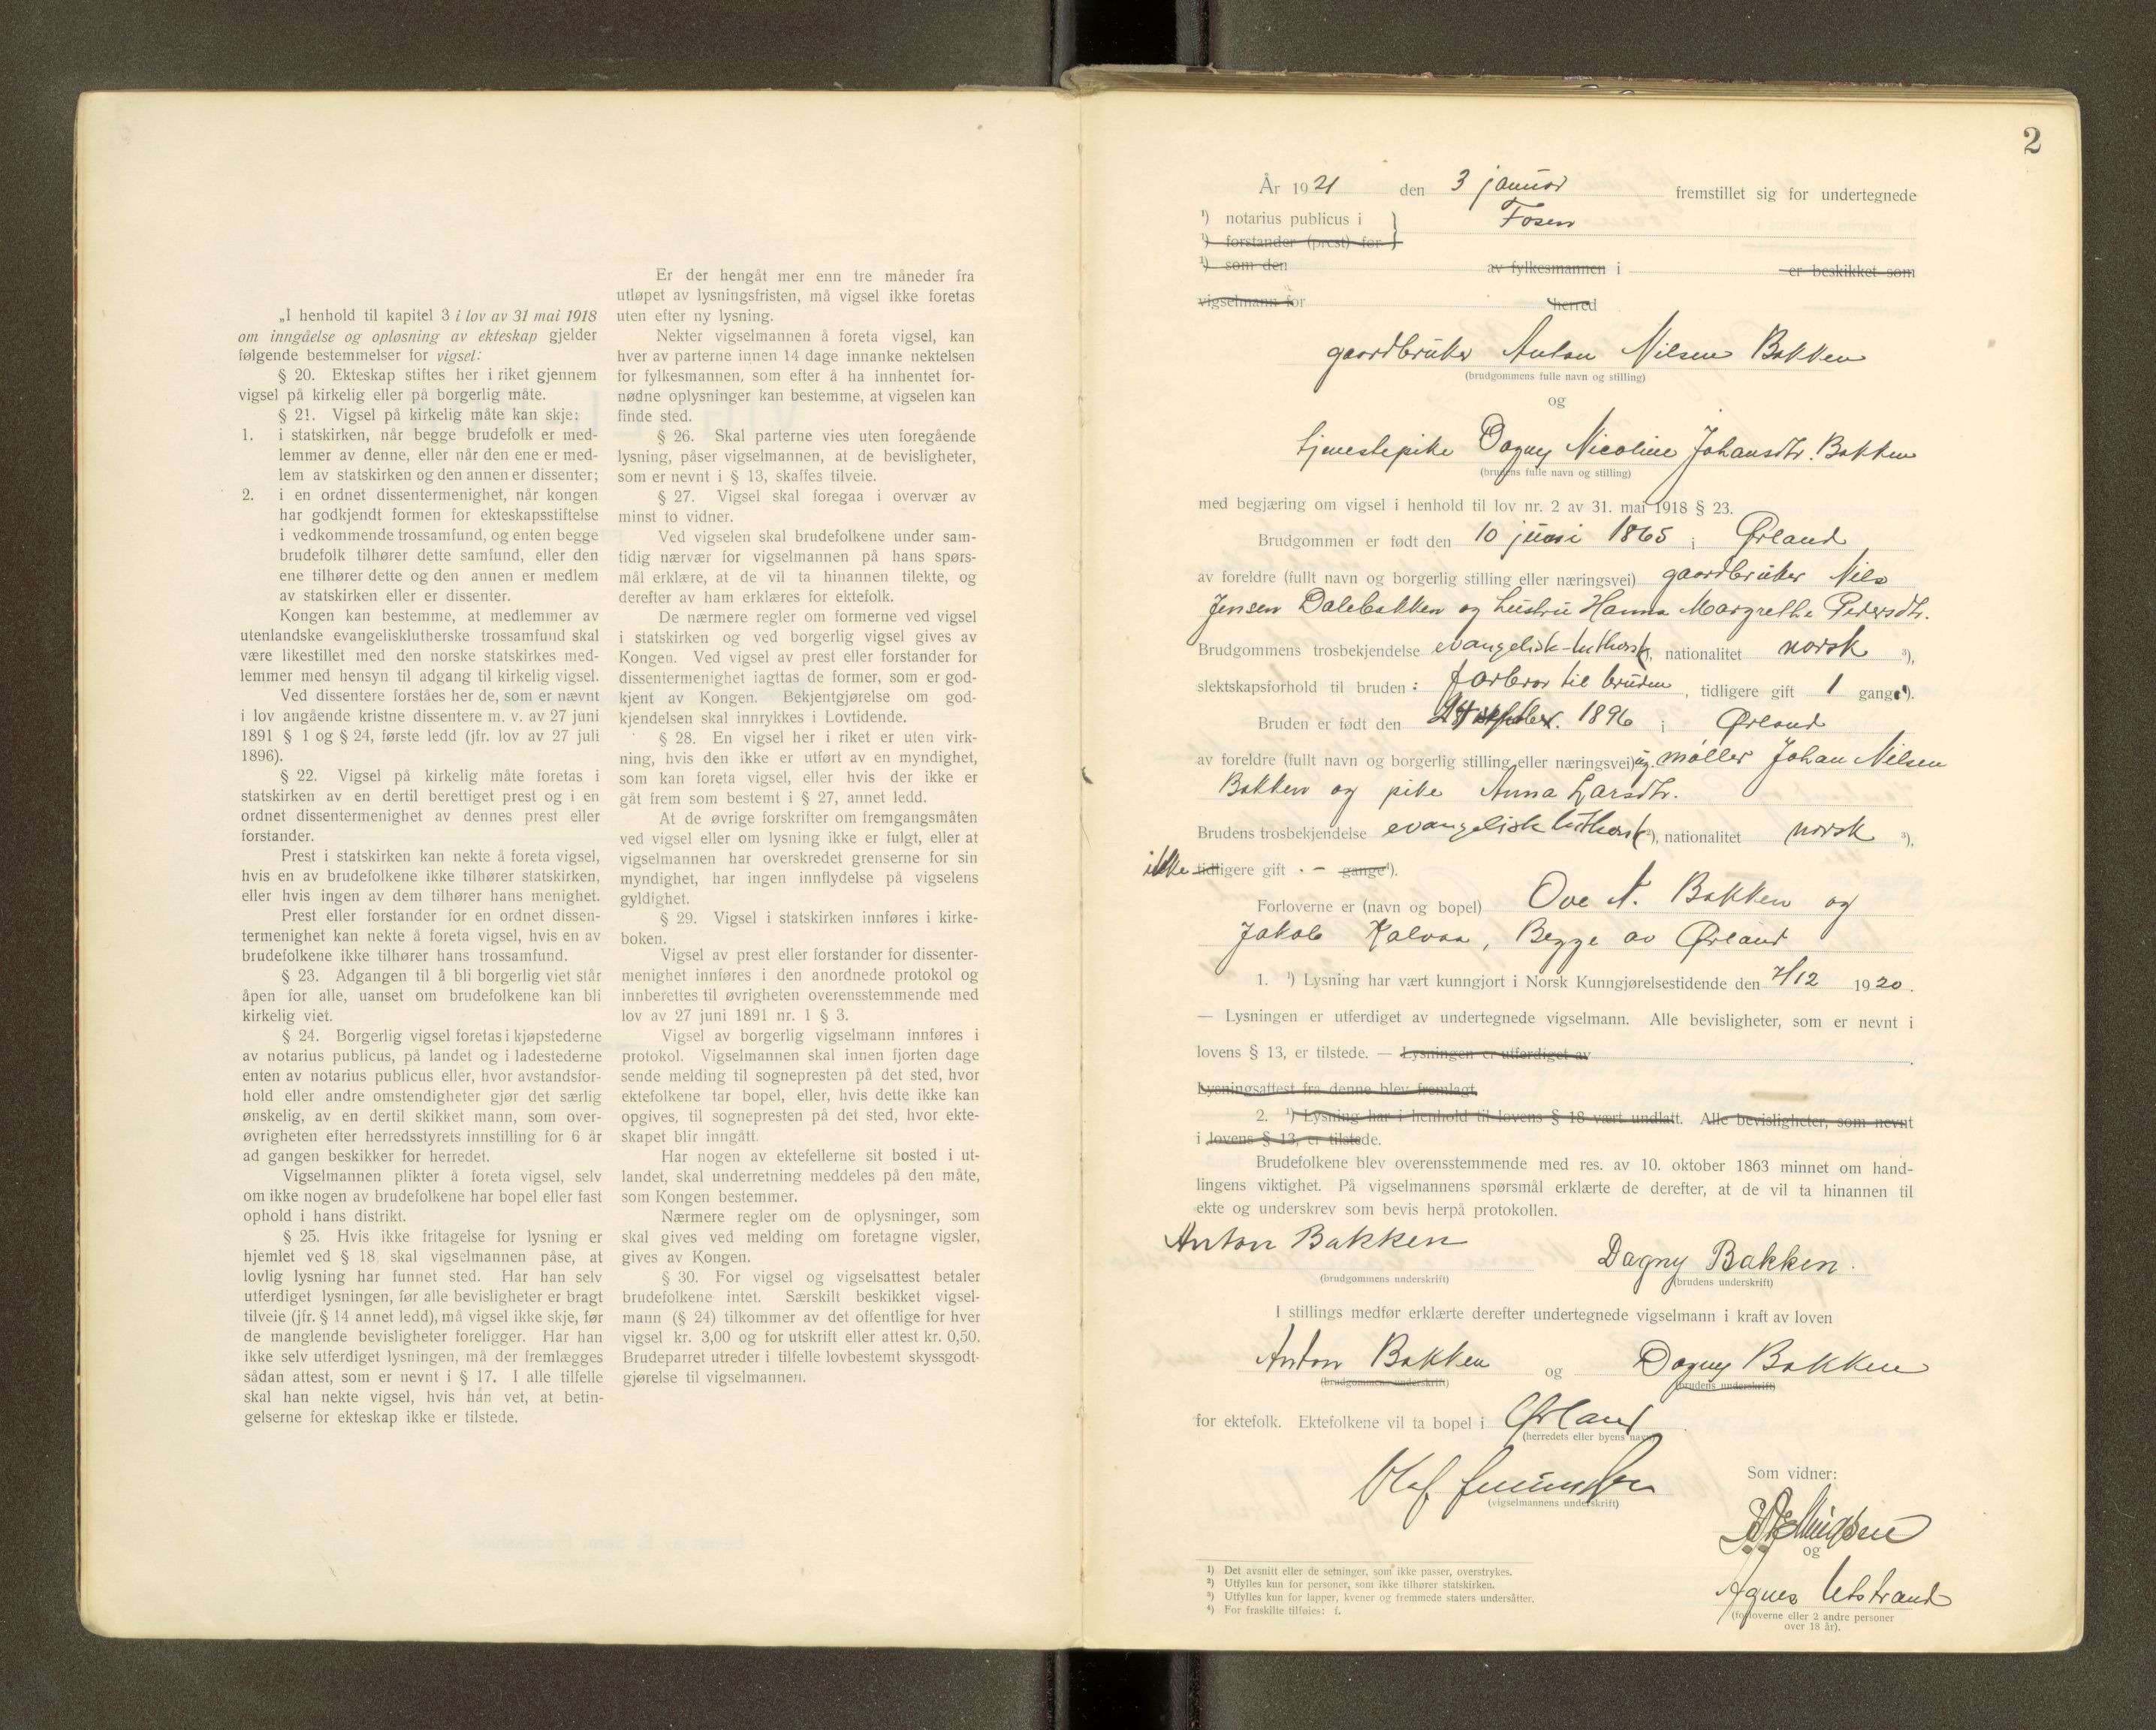 „I henhold til kapitel 3 i lov av 31 mai 1918
om inngåelse og opløsning av ekteskap gjelder
følgende bestemmelser for vigsel:
§ 20. Ekteskap stiftes her i riket gjennem
vigsel på kirkelig eller på borgerlig måte.
§ 21. Vigsel på kirkelig måte kan skje:
1. i statskirken, når begge brudefolk er med-
lemmer av denne, eller når den ene er med-
lem av statskirken og den annen er dissenter;
2. i en ordnet dissentermenighet, når kongen
har godkjendt formen for ekteskapsstiftelse
i vedkommende trossamfund, og enten begge
brudefolk tilhører dette samfund, eller den
ene tilhører dette og den annen er medlem
av statskirken eller er dissenter.
Kongen kan bestemme, at medlemmer av
utenlandske evangelisklutherske trossamfund skal
være likestillet med den norske statskirkes med-
lemmer med hensyn til adgang til kirkelig vigsel.
Ved dissentere forståes her de, som er nævnt
i lov angående kristne dissentere m. v. av 27 juni
1891 § 1 og § 24, første ledd (jfr. lov av 27 juli
1896).
§ 22. Vigsel på kirkelig måte foretas i
statskirken av en dertil berettiget prest og i en
ordnet dissentermenighet av dennes prest eller
forstander.
Prest i statskirken kan nekte å foreta vigsel,
hvis en av brudefolkene ikke tilhører statskirken,
eller hvis ingen av dem tilhører hans menighet.
Prest eller forstander for en ordnet dissen-
termenighet kan nekte å foreta vigsel, hvis en av
brudefolkene ikke tilhører hans trossamfund.
§ 23. Adgangen til å bli borgerlig viet står
åpen for alle, uanset om brudefolkene kan bli
kirkelig viet.
§ 24. Borgerlig vigsel foretas i kjøpstederne
av notarius publicus, på landet og i ladestederne
enten av notarius publicus eller, hvor avstandsfor-
hold eller andre omstendigheter gjør det særlig
ønskelig, av en dertil skikket mann, som over-
øvrigheten efter herredsstyrets innstilling for 6 år
ad gangen beskikker for herredet.
Vigselmannen plikter å foreta vigsel, selv
om ikke nogen av brudefolkene har bopel eller fast
ophold i hans distrikt.
§ 25. Hvis ikke fritagelse for lysning er
hjemlet ved § 18, skal vigselmannen påse, at
lovlig lysning har funnet sted. Har han selv
utferdiget lysningen, før alle bevisligheter er bragt
tilveie (jfr. § 14 annet ledd), må vigsel ikke skje, før
de manglende bevisligheter foreligger. Har han
ikke selv utferdiget lysningen, må der fremlægges
sådan attest, som er nevnt i § 17. I alle tilfelle
skal han nekte vigsel, hvis hån vet, at betin-
gelserne for ekteskap ikke er tilstede.
Er der hengåt mer enn tre måneder fra
utløpet av lysningsfristen, må vigsel ikke foretas
uten efter ny lysning.
Nekter vigselmannen å foreta vigsel, kan
hver av parterne innen 14 dage innanke nektelsen
for fylkesmannen, som efter å ha innhentet for-
nødne oplysninger kan bestemme, at vigselen kan
finde sted.
§ 26. Skal parterne vies uten foregående
lysning, påser vigselmannen, at de bevisligheter,
som er nevnt i § 13, skaffes tilveie.
§ 27. Vigsel skal foregaa i overvær av
minst to vidner.
Ved vigselen skal brudefolkene under sam-
tidig nærvær for vigselmannen på hans spørs-
mål erklære, at de vil ta hinannen tilekte, og
derefter av ham erklæres for ektefolk.
De nærmere regler om formerne ved vigsel
i statskirken og ved borgerlig vigsel gives av
Kongen. Ved vigsel av prest eller forstander for
dissentermenighet iagttas de former, som er god-
kjent av Kongen. Bekjentgjørelse om god-
kjendelsen skal innrykkes i Lovtidende.
§ 28. En vigsel her i riket er uten virk-
ning, hvis den ikke er utført av en myndighet,
som kan foreta vigsel, eller hvis der ikke er
gåt frem som bestemt i § 27, annet ledd.
At de øvrige forskrifter om fremgangsmåten
ved vigsel eller om lysning ikke er fulgt, eller at
vigselmannen har overskredet grenserne for sin
myndighet, har ingen innflydelse på vigselens
gyldighet.
§ 29. Vigsel i statskirken innføres i kirke-
boken.
Vigsel av prest eller forstander for dissenter-
menighet innføres i den anordnede protokol og
innberettes til øvrigheten overensstemmende med
lov av 27 juni 1891 nr. 1 § 3.
Vigsel av borgerlig vigselmann innføres i
protokol. Vigselmannen skal innen fjorten dage
sende melding til sognepresten på det sted, hvor
ektefolkene tar bopel, eller, hvis dette ikke kan
opgives, til sognepresten på det sted, hvor ekte-
skapet blir inngått.
Har nogen av ektefellerne sit bosted i ut-
landet, skal underretning meddeles på den måte,
som Kongen bestemmer.
Nærmere regler om de oplysninger, som
skal gives ved melding om foretagne vigsler,
gives av Kongen.
§ 30. For vigsel og vigselsattest betaler
brudefolkene intet. Særskilt beskikket vigsel-
mann (§ 24) tilkommer av det offentlige for hver
vigsel kr. 3,00 og for utskrift eller attest kr. 0,50.
Brudeparret utreder i tilfelle lovbestemt skyssgodt-
gjørelse til vigselmannen.
2
År 1921 den 3 januar fremstillet sig for undertegnede
¹) notarius publicus i } Fosen
¹) forstander (prest) for
¹) som den av fylkesmannen i er beskikket som
vigselmann for herred
gaardbruker Anton Nilsen Bakken
(brudgommens fulle navn og stilling)
og
tjenestepike Dagny Nicoline Johansdtr. Bakken
(brudens fulle navn og stilling)
med begjæring om vigsel i henhold til lov nr. 2 av 31. mai 1918 § 23.
Brudgommen er født den 10 juni 1865 i Ørland
av foreldre (fullt navn og borgerlig stilling eller næringsvei) gaardbruker Nils
Jensen Dalebakken og hustru Hanna Margrethe Pedersdtr.
Brudgommens trosbekjendelse evangelisk-luthersk ²), nationalitet norsk ³),
slektskapsforhold til bruden: farbror til bruden, tidligere gift 1 gang ⁴).
Bruden er født den 24 1896 i Ørland
av foreldre (fullt navn og borgerlig stilling eller næringsvei) ug. møller Johan Nilsen
Bakken og pike Anna Larsdtr.
Brudens trosbekjendelse evangelisk luthersk ²), nationalitet norsk ³),
ikke tidligere gift - gange ⁴).
Forloverne er (navn og bopel) Ove N. Bakken og
Jakob Kalvaa, Begge av Ørland
1. ¹) Lysning har vært kunngjort i Norsk Kunngjørelsestidende den 7/12 1920.
— Lysningen er utferdiget av undertegnede vigselmann. Alle bevisligheter, som er nevnt i
lovens § 13, er tilstede. — Lysningen er utferdiget av
Lysningsattest fra denne blev fremlagt.
2. ¹) Lysning har i henhold til lovens § 18 vært undlatt. Alle bevisligheter, som nevnt
i lovens § 13, er tilstede.
Brudefolkene blev overensstemmende med res. av 10. oktober 1863 minnet om hand-
lingens viktighet. På vigselmannens spørsmål erklærte de derefter, at de vil ta hinannen til
ekte og underskrev som bevis herpå protokollen.
Anton Bakken Dagny Bakken.
(brudgommens underskrift) (brudens underskrift)
I stillings medfør erklærte derefter undertegnede vigselmann i kraft av loven
Anton Bakken og Dagny Bakken
(brudgommens underskrift) (brudens underskrift)
for ektefolk. Ektefolkene vil ta bopel i Ørland.
(herredets eller byens navn)
Olaf
(vigselmannens underskrift)
Som vidner:
og
Agnes Utstrand
(forloverne eller 2 andre personer
over 18 år).
¹) Det avsnitt eller de setninger, som ikke passer, overstrykes.
²) Utfylles kun for personer, som ikke tilhører statskirken.
³) Utfylles kun for lapper, kvener og fremmede staters undersåtter.
⁴) For fraskilte tilføies: f.